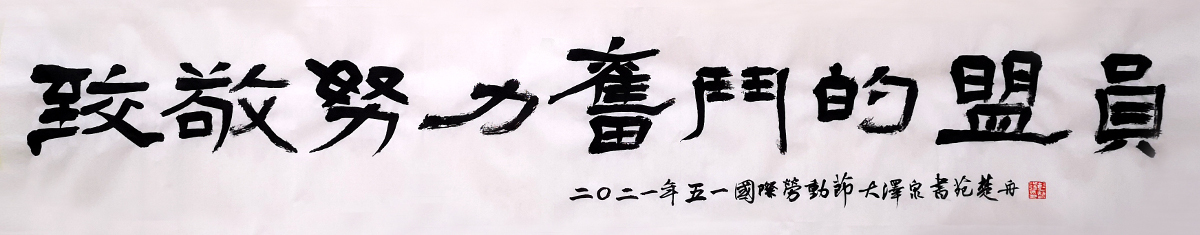 致敬努力奮鬥的盟員
二〇二一年五一國際勞動節大澤泉書於楚丹